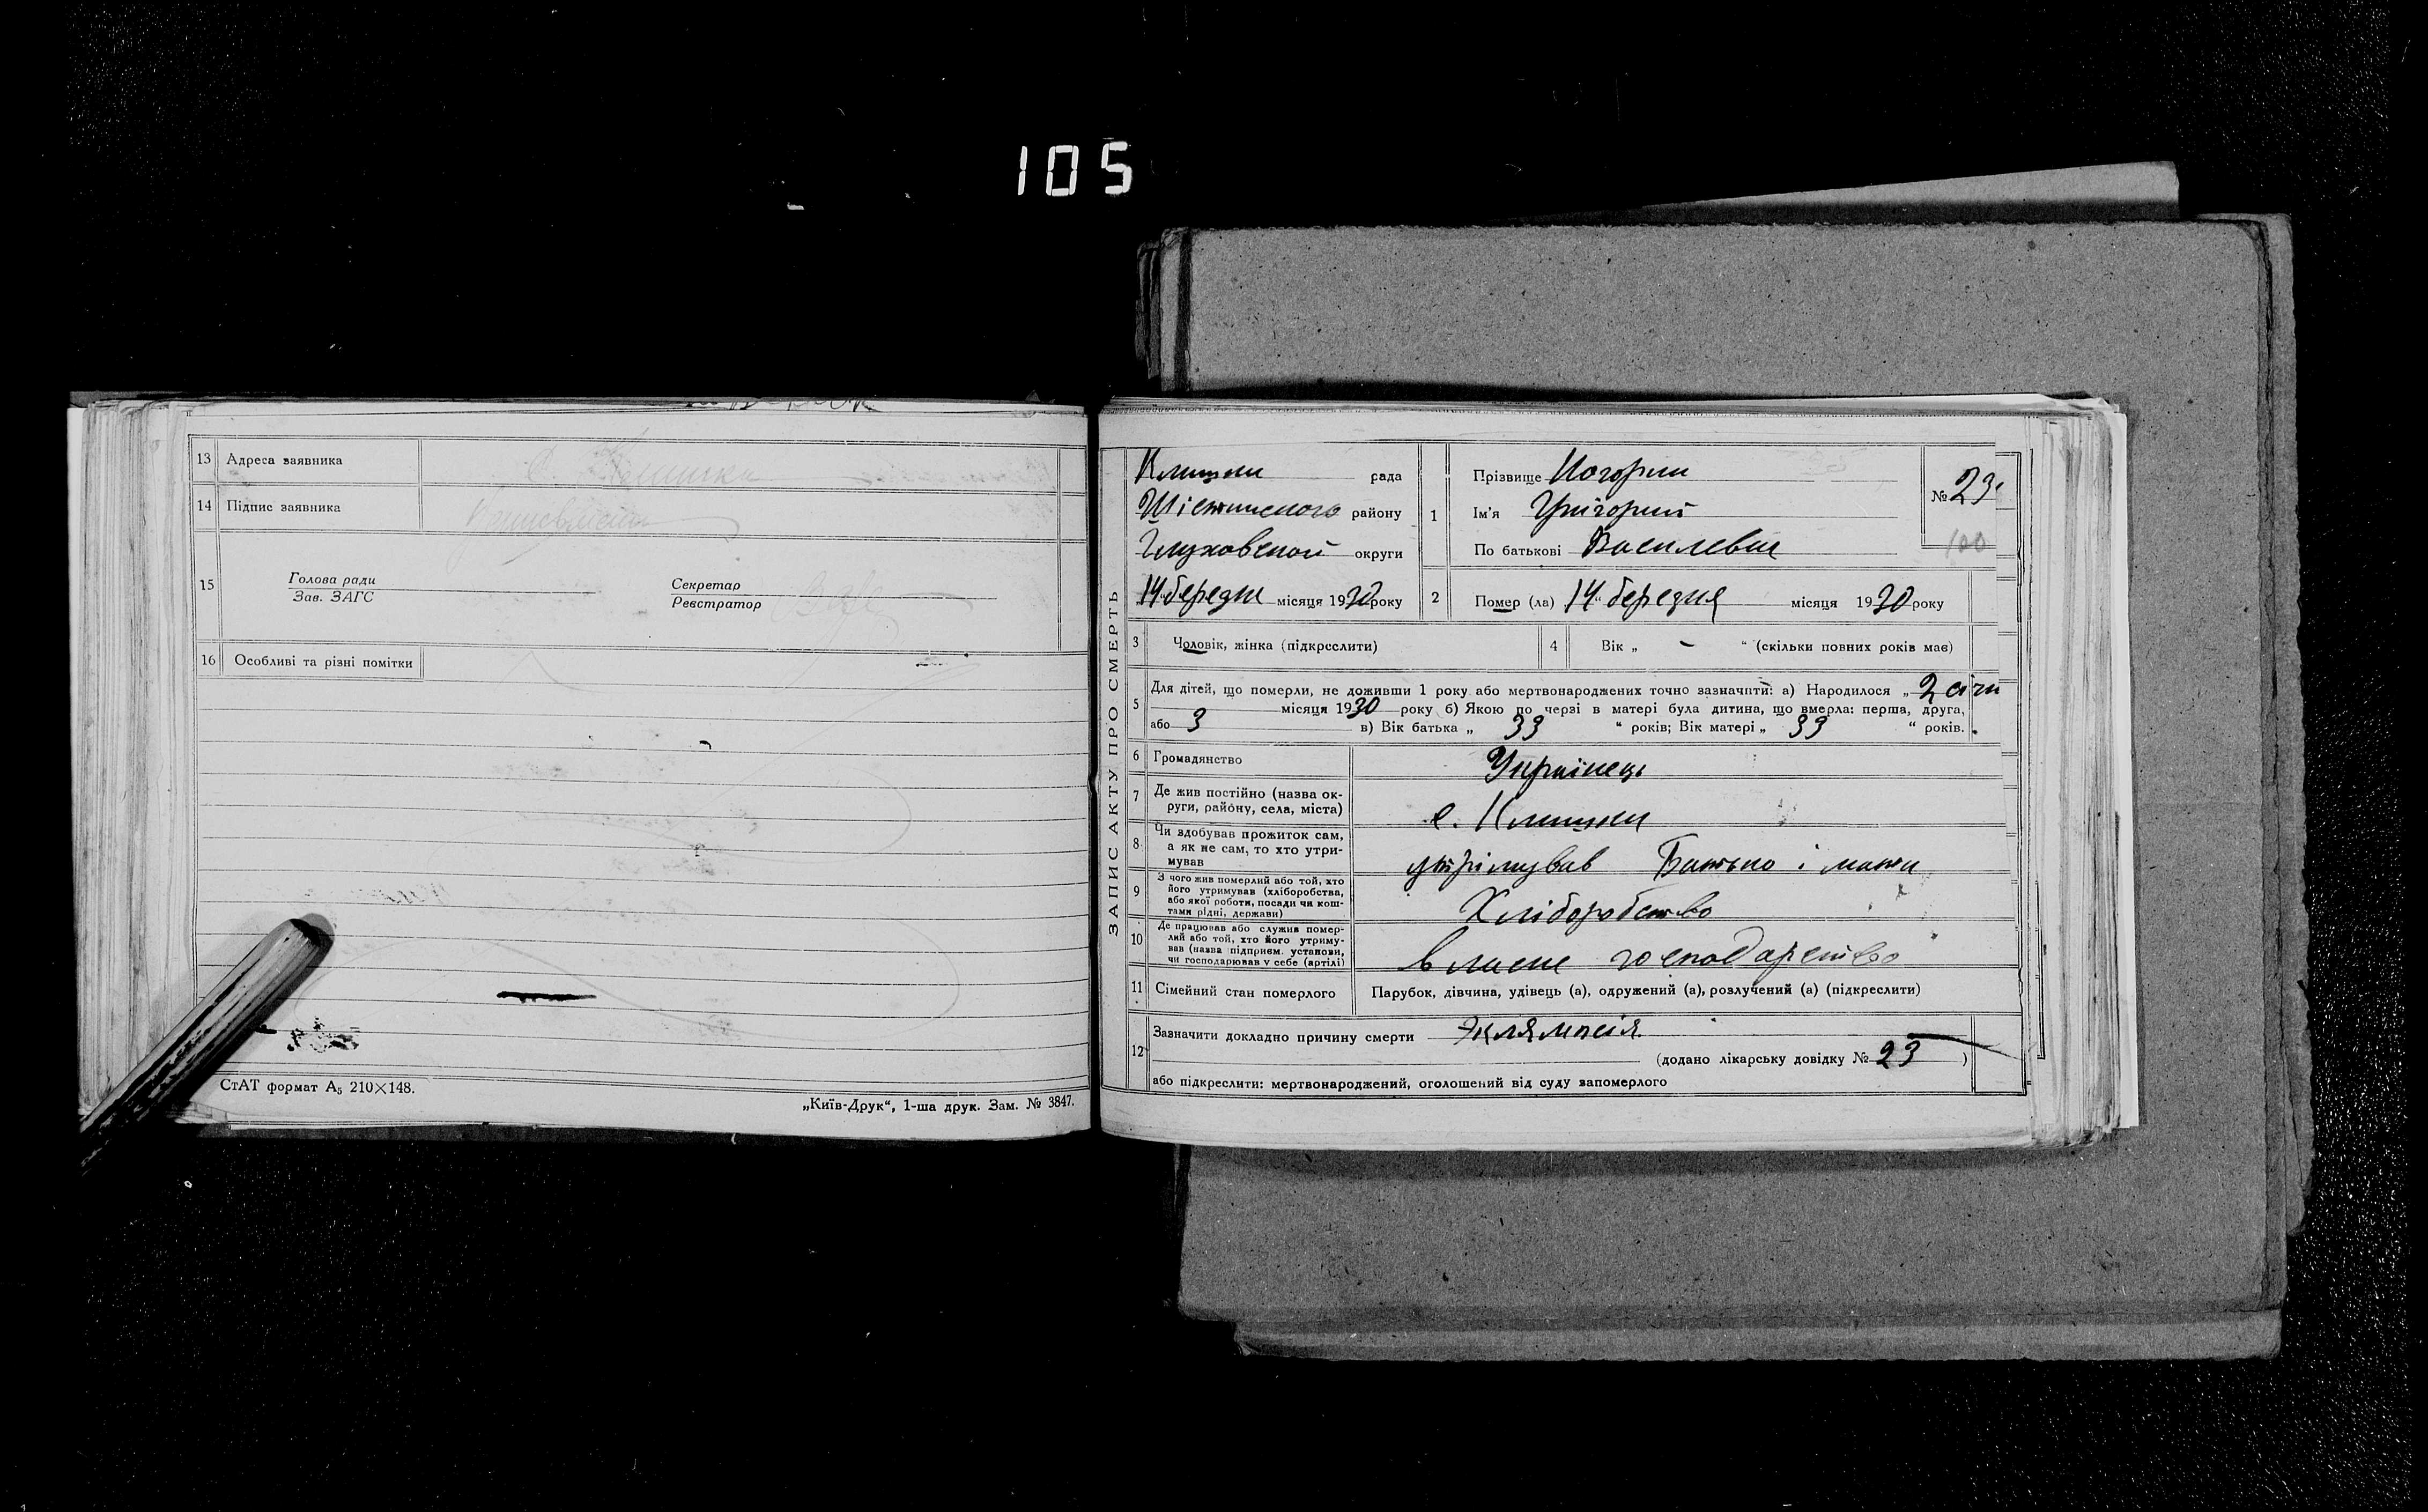 105
13 Адреса заявника
14 Підпис заявника
15 Голова ради
Зав. ЗАГС
Секретар
Реєстратор
16 Особливі та різні помітки
СтАТ формат А₅ 210×148.
„Київ-Друк“, 1-ша друк. Зам. № 3847.
ЗАПИС АКТУ ПРО СМЕРТЬ
Клишки рада
Шісткинского району
Глуховской округи
14 березня місяця 1930 року
1 Прізвище
Ім'я Григорий
По батькові Василевич
№ 23.
100
2 Помер (ла) „14“ березня місяця 1930 року
3 Чоловік, жінка (підкреслити)
4 Вік „ - “ (скільки повних років має)
5 Для дітей, що померли, не доживши 1 року або мертвонароджених точно зазначити: а) Народилося „ 2 січн
місяця 1930 року б) Якою по черзі в матері була дитина, що вмерла: перша, друга,
або 3 в) Вік батька „ 33 “ років; Вік матері „ 33 “ років.
6 Громадянство Українець
7 Де жив постійно (назва ок-
руги, району, села, міста) с. Клишки
8 Чи здобував прожиток сам,
а як не сам, то хто утри-
мував утрімував Батько і мати
9 З чого жив померлий або той, хто
його утримував (хліборобства,
або якої роботи, посади чи кош-
тами рідні, держави) Хліборобство
10 Де працював або служив помер-
лий або той, хто його утриму-
вав (назва підприєм. установи,
чи господарював у себе (артілі) власне господарство
11 Сімейний стан померлого Парубок, дівчина, удівець (а), одружений (а), розлучений (а) (підкреслити)
12 Зазначити докладно причину смерти Эклямпсія
(додано лікарську довідку № 23 )
або підкреслити: мертвонароджений, оголошений від суду запомерлого